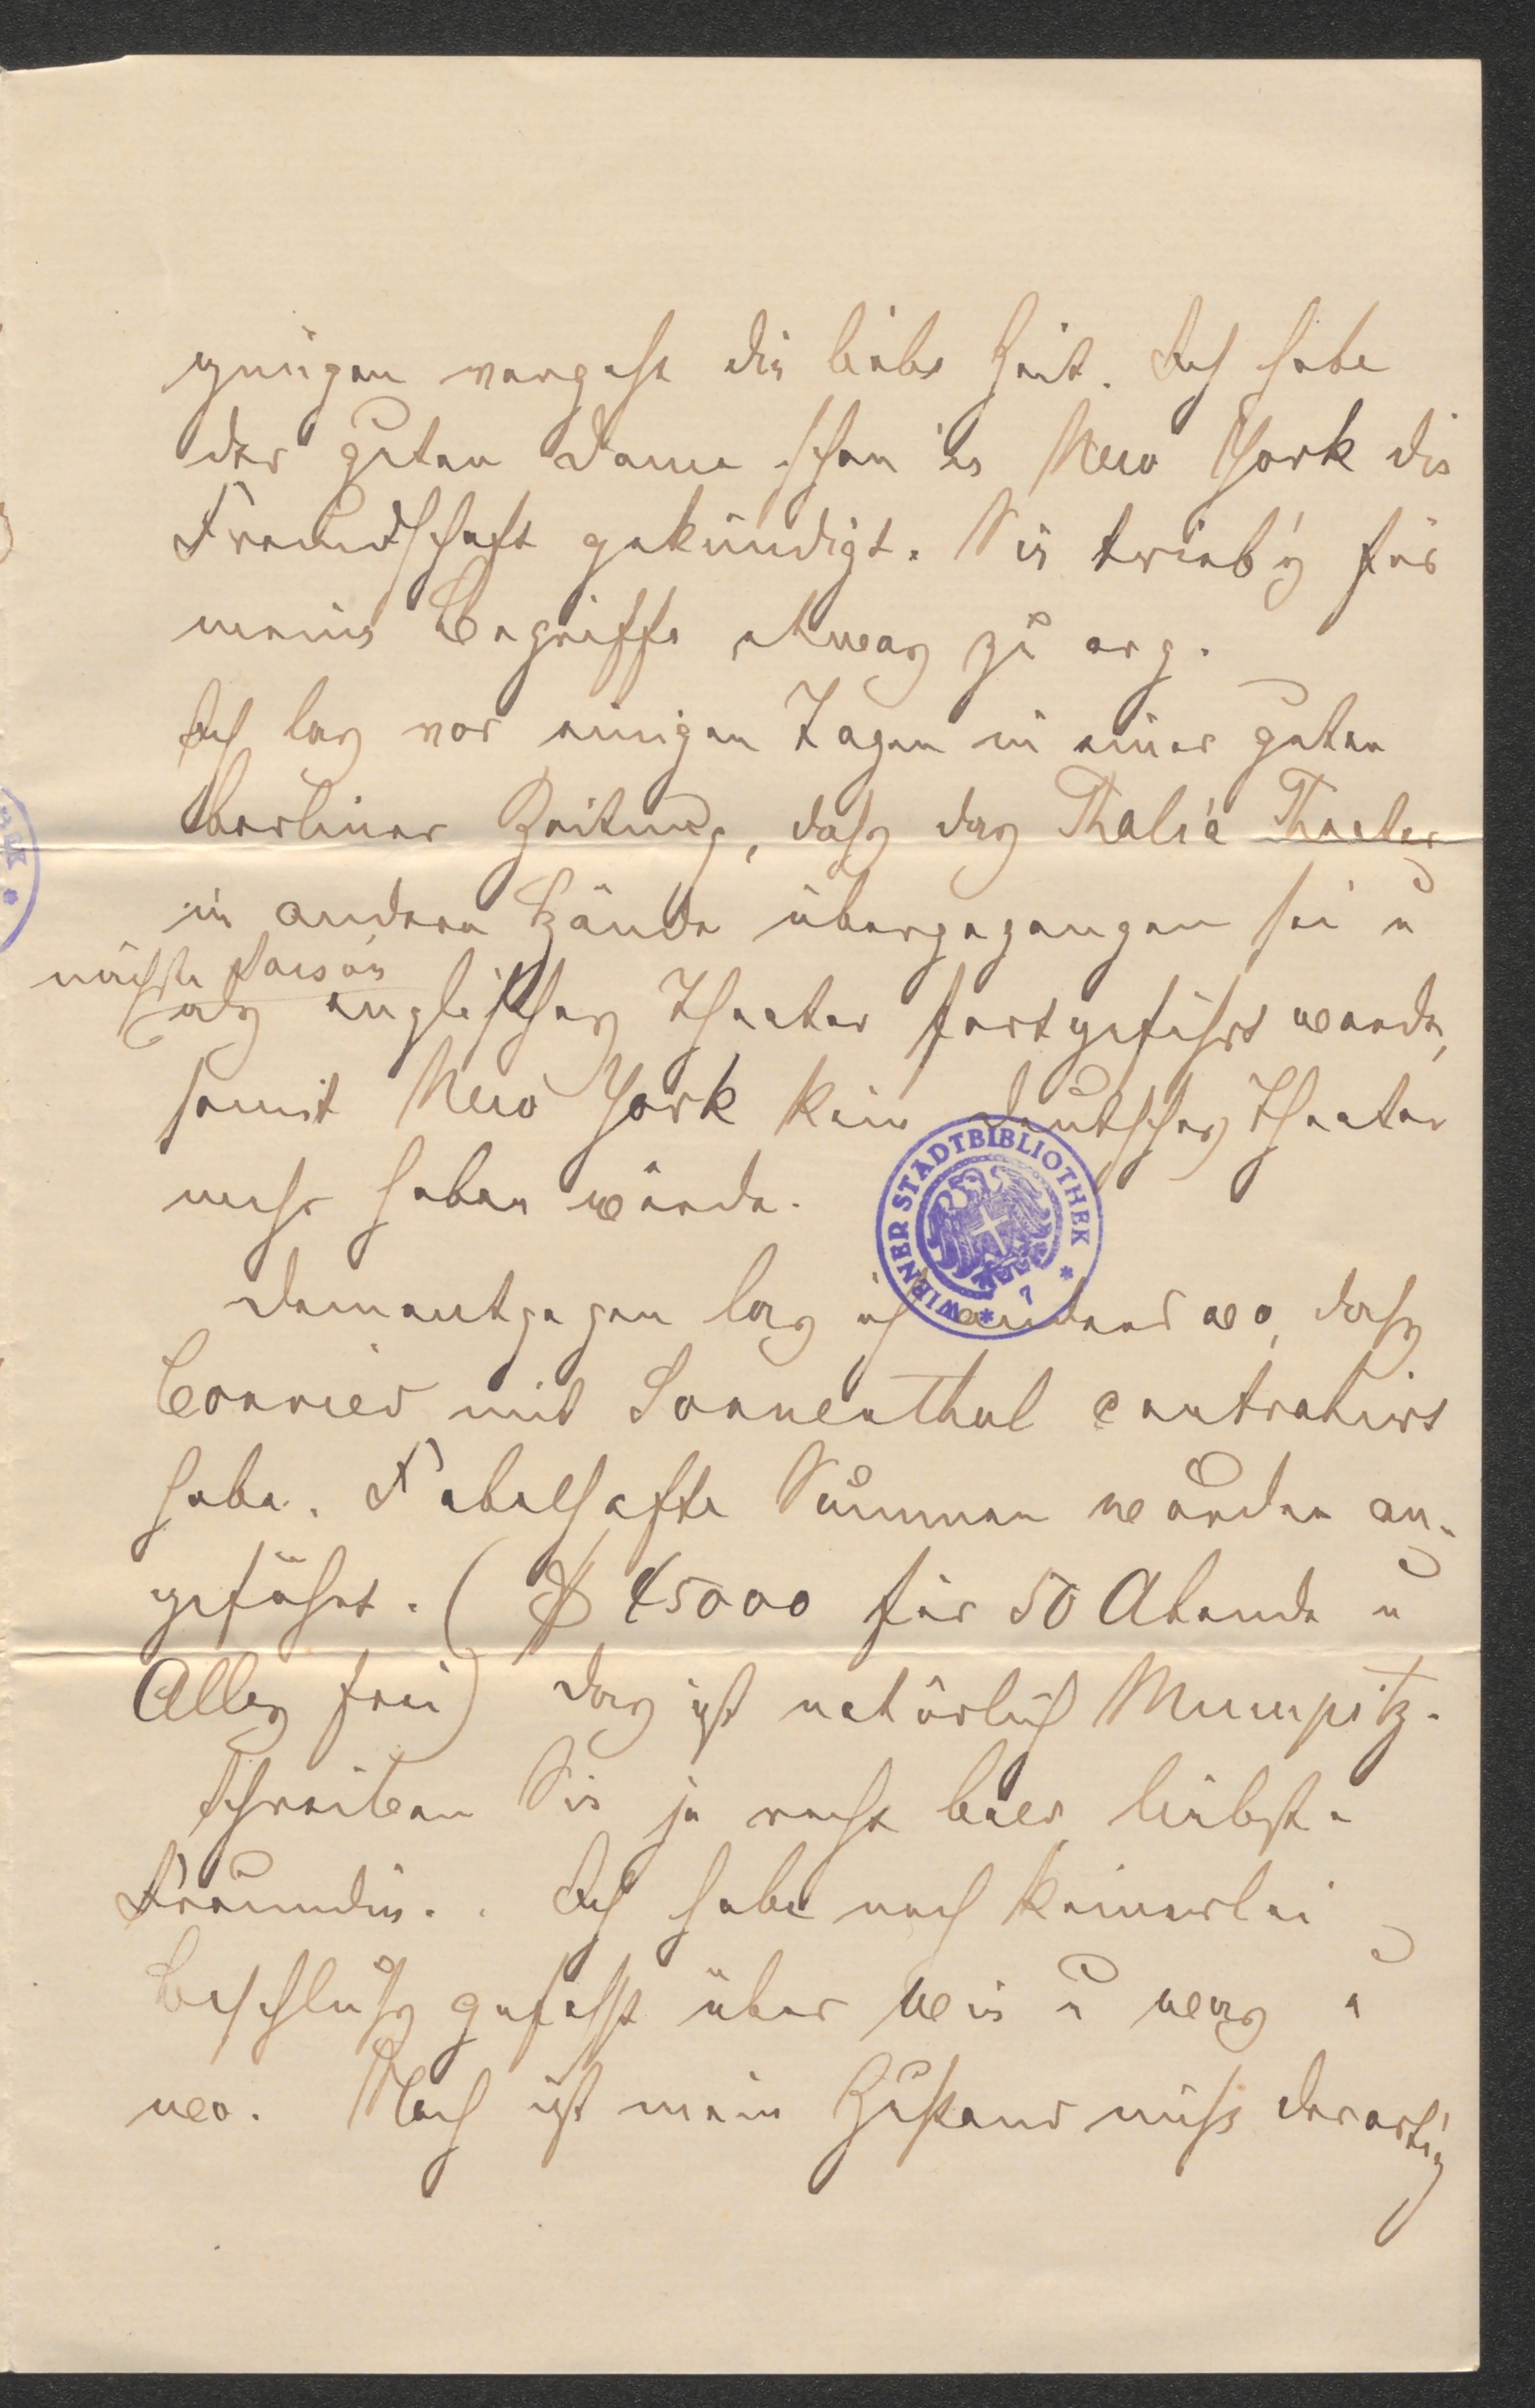 gnügen vergeht die liebe Zeit. Ich habe
der guten Dame schon in New York die
Freundschaft gekündigt. Sie trieb's für
meine Begriffe etwas zu arg.
Ich las vor einigen Tagen in einer guten
Berliner Zeitung, dass das Thalia Theater
in andere Hände übergegangen sei u
nächste Saison
als englisches Theater fortgeführt werde,
somit New York kein deutsches Theater
mehr haben würde.
Dementgegen las ich anderswo, dass
Conried mit Sonnenthal contrahirt
habe. Fabelhafte Summen wurden an-
geführt. ($ 45000 für 50 Abende u
Alles frei) Das ist natürlich Mumpitz.
Schreiben Sie ja recht bald, liebste
Freundin. Ich habe noch keinerlei
Beschluss gefasst über wie u was u
wo. Noch ist mein Zustand nicht derartig
WIENER STADTBIBLIOTHEK * 7 *